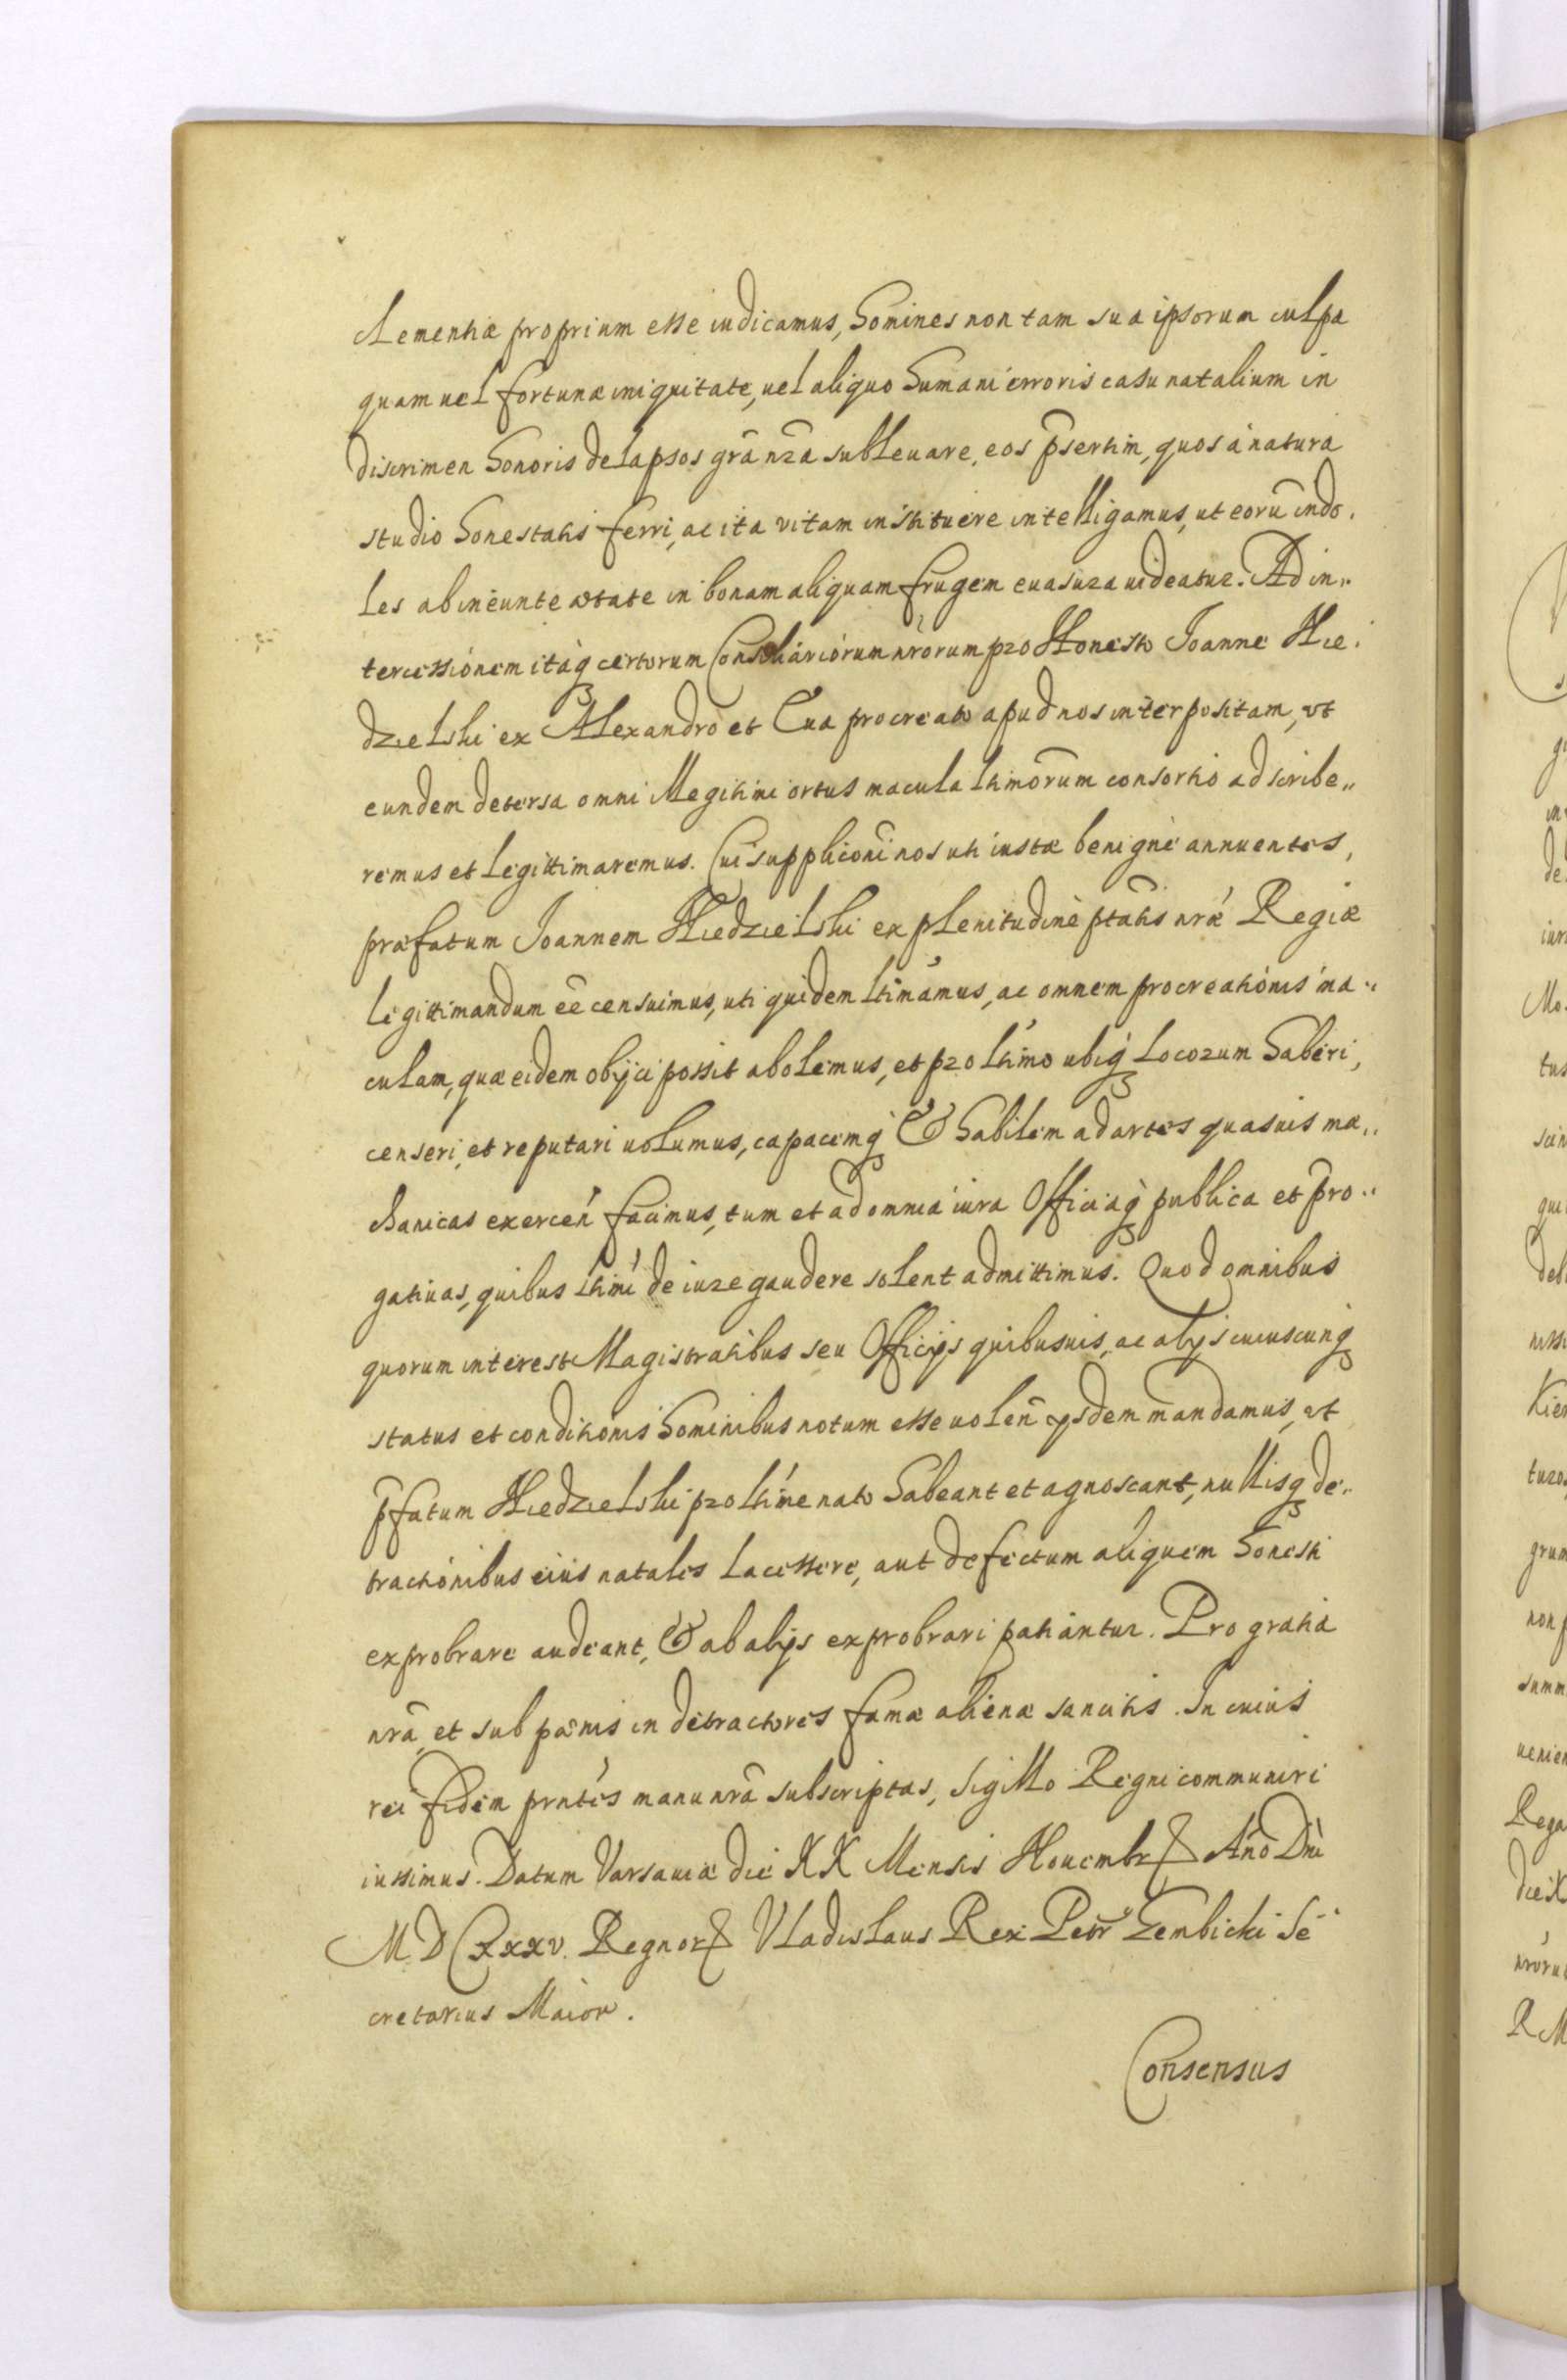 clementiæ proprium esse iudicamus, homines non tam sua ipsorum culpa
quam uel fortunæ iniquitate, uel aliquo humani erroris casu natalium in
discrimen honoris delapsos grã nrã subleuare, eos p̃sertim, quos à natura
studio honestatis ferri, ac ita vitam instituere intelligamus, ut eorũ indo.
les ab ineunte ætate in bonam aliquam frugem euasura uideatur. Ad in„
tercessionem itaq₃ certorum Consiliariorum nrorum pro Honesto Joanne Nie.
dzielski ex Alexandro et Eua procreato apud nos interpositam, vt
eundem detersa omni illegitimi ortus macula ltimorum consortio adscribe„
remus et legittimaremus. Cui supplicõni nos uti iustæ benignè annuentes,
præfatum Joannem Niedzielski ex plenitudinè ptatis nræ Regiæ
legittimandum eẽ censuimus, uti quidem ltimamus, ac omnem procreationis ma„
culam, quæ eidem obijci possit abolemus, et pro ltimo ubiq₃ locorum haberi,
censeri, et reputari uolumus, capacemq₃ & habilem ad artes quasuis mæ„
chanicas exercen̄ facimus, tum et ad omnia iura Officiaq₃ publica et p̃ro„
gatiuas, quibus ltimi de iure gaudere solent admittimus. Quod omnibus
quorum interest Magistratibus seu Officijs quibusuis, ac alijs cuiuscunq₃
status et conditionis hominibus notum esse uolen̄ ijsdem mandamus, vt
p̃fatum Niedzielski pro ltime nato habeant et agnoscant, nullisq₃ de„
tractionibus eius natales lacessere, aut defectum aliquem honesti
exprobrare audeant, & ab alijs exprobrari patiantur. Pro gratia
nrã, et sub pœnis in detractores famæ alienæ sancitis. In cuius
rei fidem prntes manu nrã subscriptas, sigillo Regni communiri
iussimus. Datum Varsauiæ die XX Mensis Nouembr Año Dñi
MDCxxxv. Regnor Vladislaus Rex Petr Gembicki Se
cretarius Maior.
Consensus